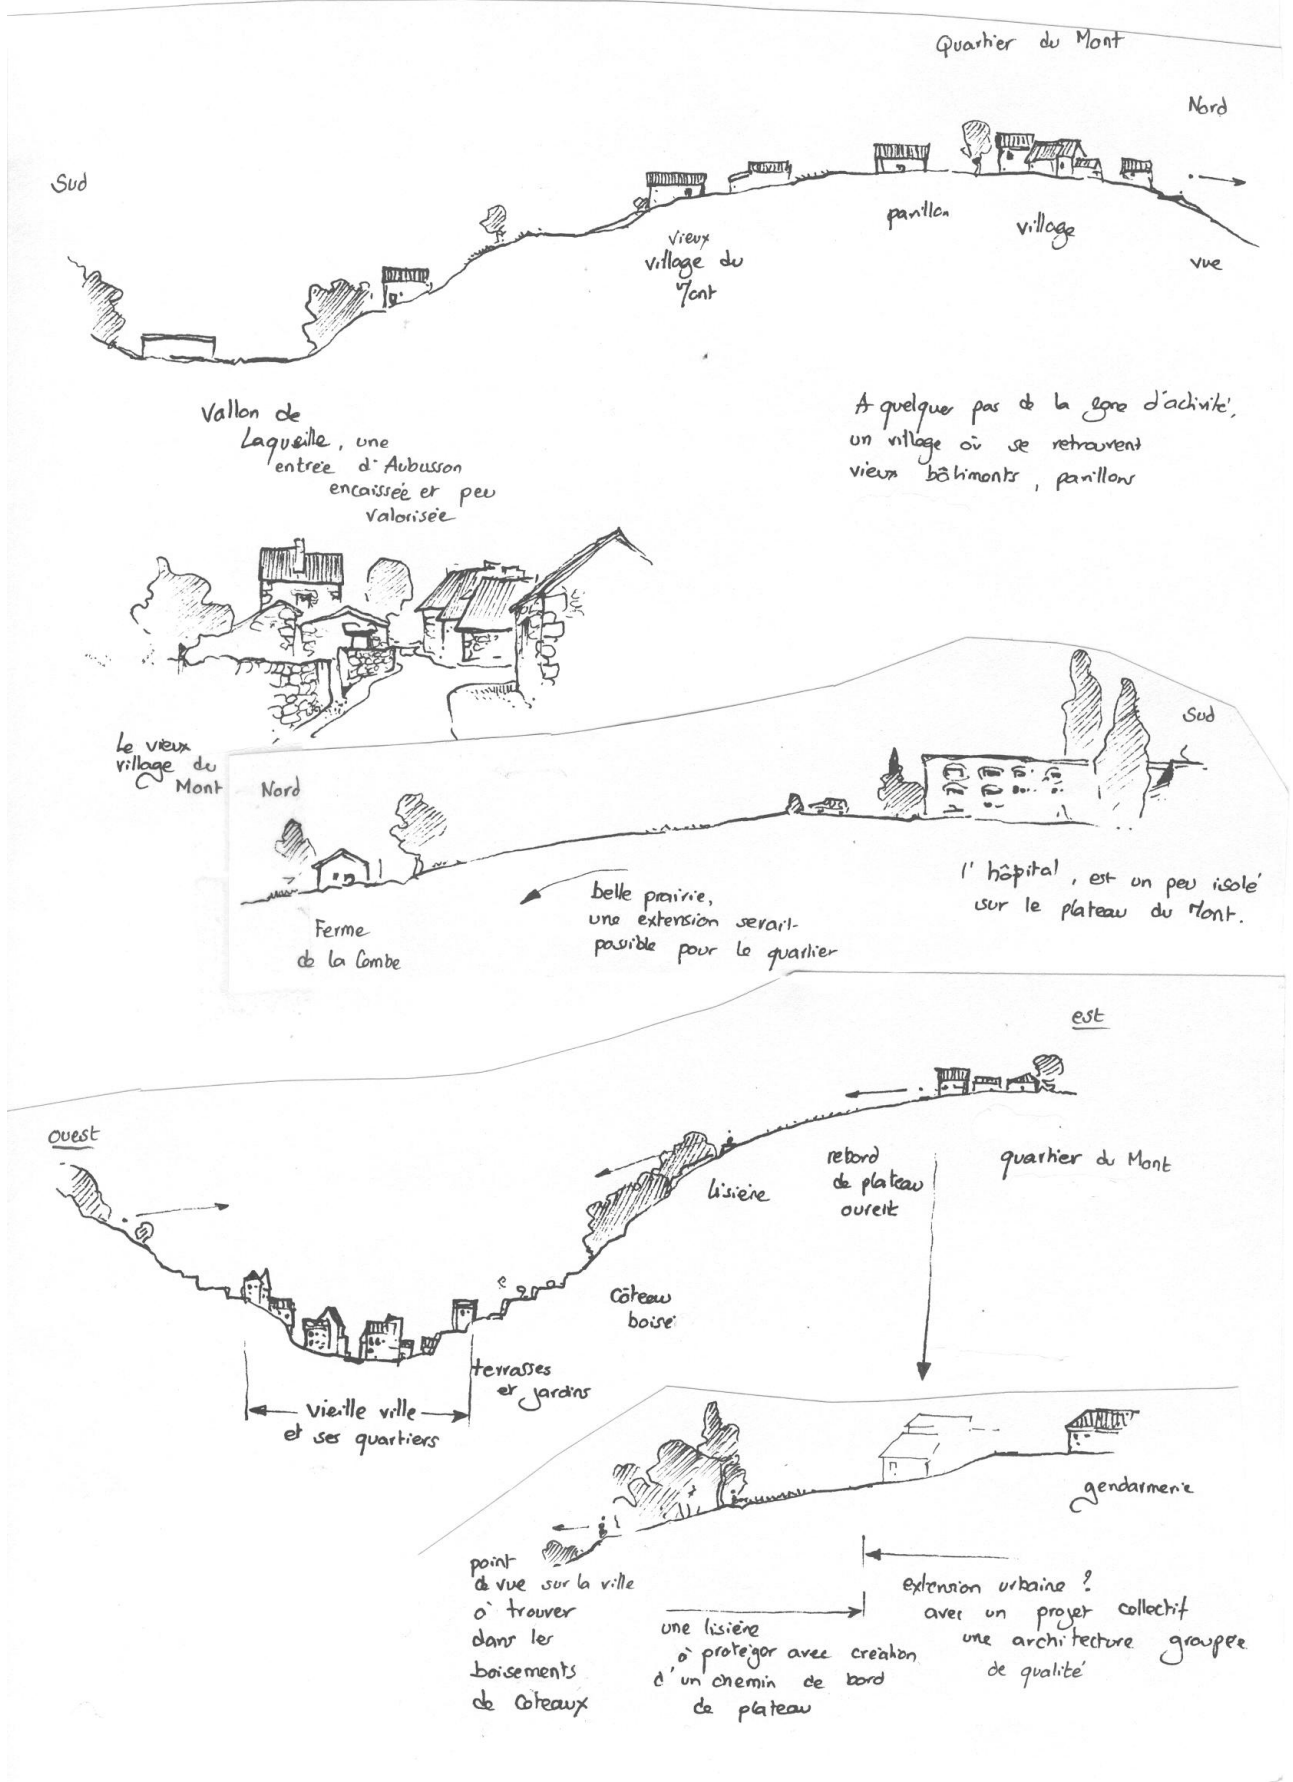 Quartier du Mont
Nord
Sud
pavillon
village
vieux
village du
Mont
vue
Vallon de
Laqueille, une
entrée d'Aubusson
encaissée et peu
valorisée
A quelques pas de la zone d'activité,
un village où se retrouvent
vieux bâtiments, pavillons
Le vieux
village du
Mont
Nord
Sud
Ferme
de la Combe
belle prairie,
une extension serait
possible pour le quartier
l'hôpital, est un peu isolé
sur le plateau du Mont.
est
ouest
rebord
de plateau
ouvert
quartier du Mont
lisière
Côteau
boisé
terrasses
et jardins
vieille ville
et ses quartiers
gendarmerie
point
de vue sur la ville
à trouver
dans les
boisements
de coteaux
une lisière
à protéger avec création
d'un chemin de bord
de plateau
extension urbaine ?
avec un projet collectif
une architecture groupée
de qualité